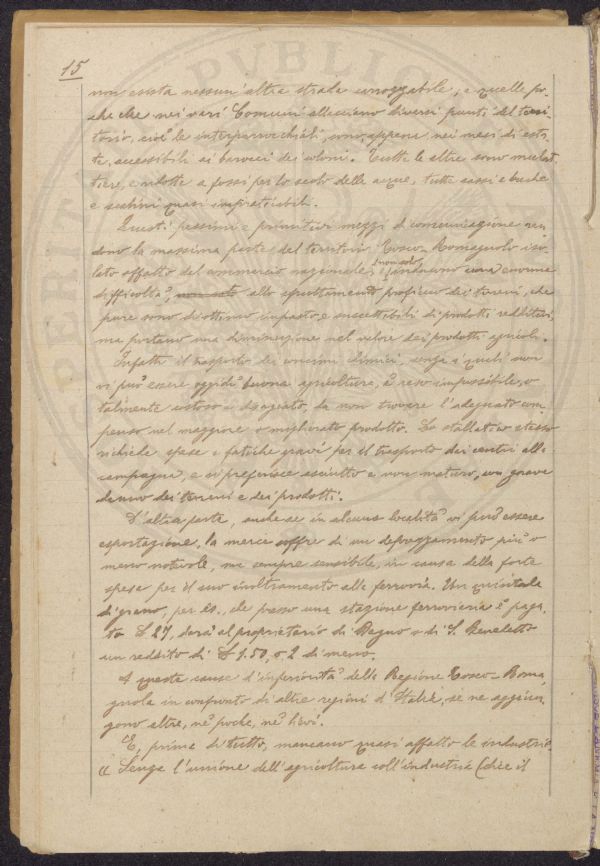 15
non esista nessun altra strada carrozzabile, e quelle po-
che che nei vari Comuni allacciano diversi punti del terri-
torio, cioè le interparrocchiali, sono, appena nei mesi di esta-
te, accessibili ai barocci dei coloni. Tutte le altre sono mulat-
tiere, e ridotte a fossi per lo scolo delle acque, tutte sassi e buche
e scalini quasi impraticabili.
Questi pessimi e primitivi mezzi di comunicazione ren-
dono la massima parte del territorio Tosco-Romagnolo iso-
lato affatto del commercio nazionale, (non solo) una enorme
difficoltà, non solo allo sfruttamento proficuo dei terreni, che
pure sono di ottimo impasto, e suscettibili di prodotti redditivi,
ma portano una diminuzione nel valore dei prodotti agricoli.
Infatti il trasporto dei concimi chimici, senza i quali non
vi può essere oggidì buona agricoltura, è reso impossibile, o
talmente costoso e disagiato, da non trovare l'adeguato com-
penso nel maggiore o migliorato prodotto. Lo stallatico stesso
richiede spese e fatiche gravi per il trasporto dai centri alla
campagna, e si preferisce asciutto e non maturo, con grave
danno dei terreni e dei prodotti.
D'altra parte, anche se in alcune località vi può essere
esportazione, la merce soffre di un deprezzamento più o
meno notevole, ma sempre sensibile, in causa della forte
spesa per il suo inoltramento alla ferrovia. Un quintale
di grano, per es. che presso una stazione ferroviaria è paga-
to £ 27, darà al proprietario di Bagno o di S. Benedetto
un reddito di £ 1.50, o 2 di meno.
A queste cause d'inferiorità della Regione Tosco-Roma-
gnola in confronto di altre regioni d'Italia, se ne aggiun-
gono altre, nè poche, nè lievi.
E, prima di tutto, mancano quasi affatto le industrie.
"Senza l'unione dell'agricoltura coll'industria (dice il